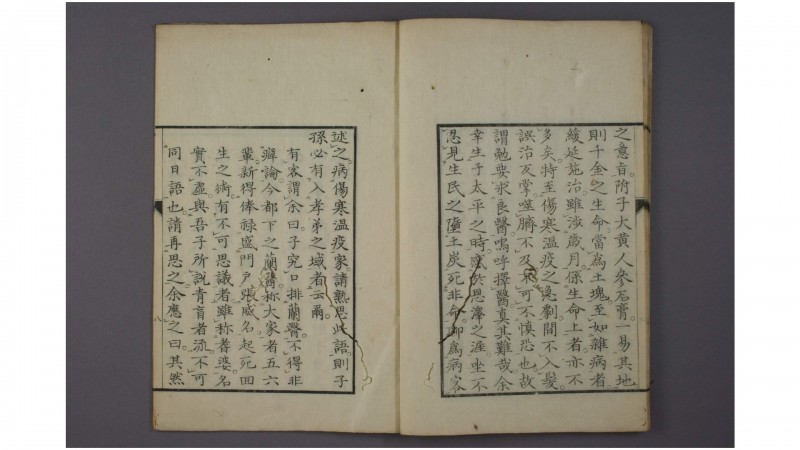 之意旨附子大黄人參石膏一易其地
則千金之生命當爲土塊至如雜病者
緩延施治雖涉歲月保生命上者亦不
多矣特至傷寒溫疫之急劇間不入髮
誤治反掌噬臍不及不可不愼恐也故
謂勉要求良醫嗚呼擇醫眞其難哉余
幸生于太平之時於恩澤之涯坐不
忍見生民之墮土炭死非命卽爲病客
述之病傷寒溫疫家請熟思此語則子
孫必有入孝弟之域者云爾
有客謂余曰子究口排蘭醫不得非
癖論今都下之蘭醫称大家者五六
輩新得俸禄盛門戸張威名起死回
生之術有不可思議者雖称耆婆名
實不虛與吾子所說靑盲者流不可
同日語也請再思之余應之曰其然